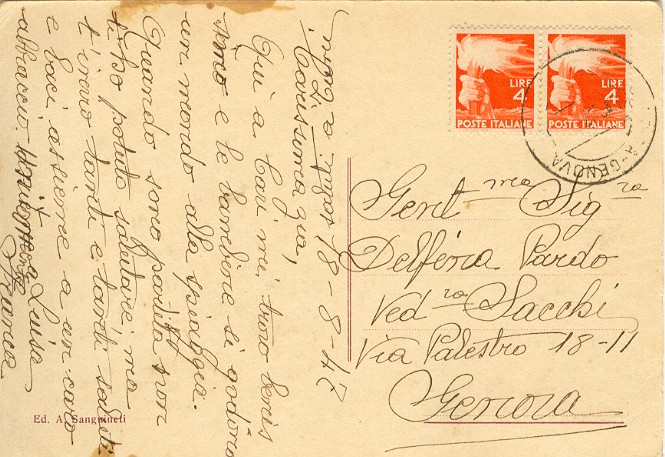 18-8-47
Carissima zia,
Qui a Cari mi trovo benis
simo e le bambine si godono
un mondo alla spiaggia.
Quando sono partita non
ti ho potuto salutare, ma
t'invio tanti e tanti saluti
e baci assieme a un caro
abbraccio Luisa
Franca
LIRE
4
POSTE ITALIANE
LIRE
4
POSTE ITALIANE
GENOVA
Gent.ma Sig.ra
Delfina Pardo
Ved.ra Sacchi
Via Palestro 18-11
Genova
Ed. A. Sanguineti